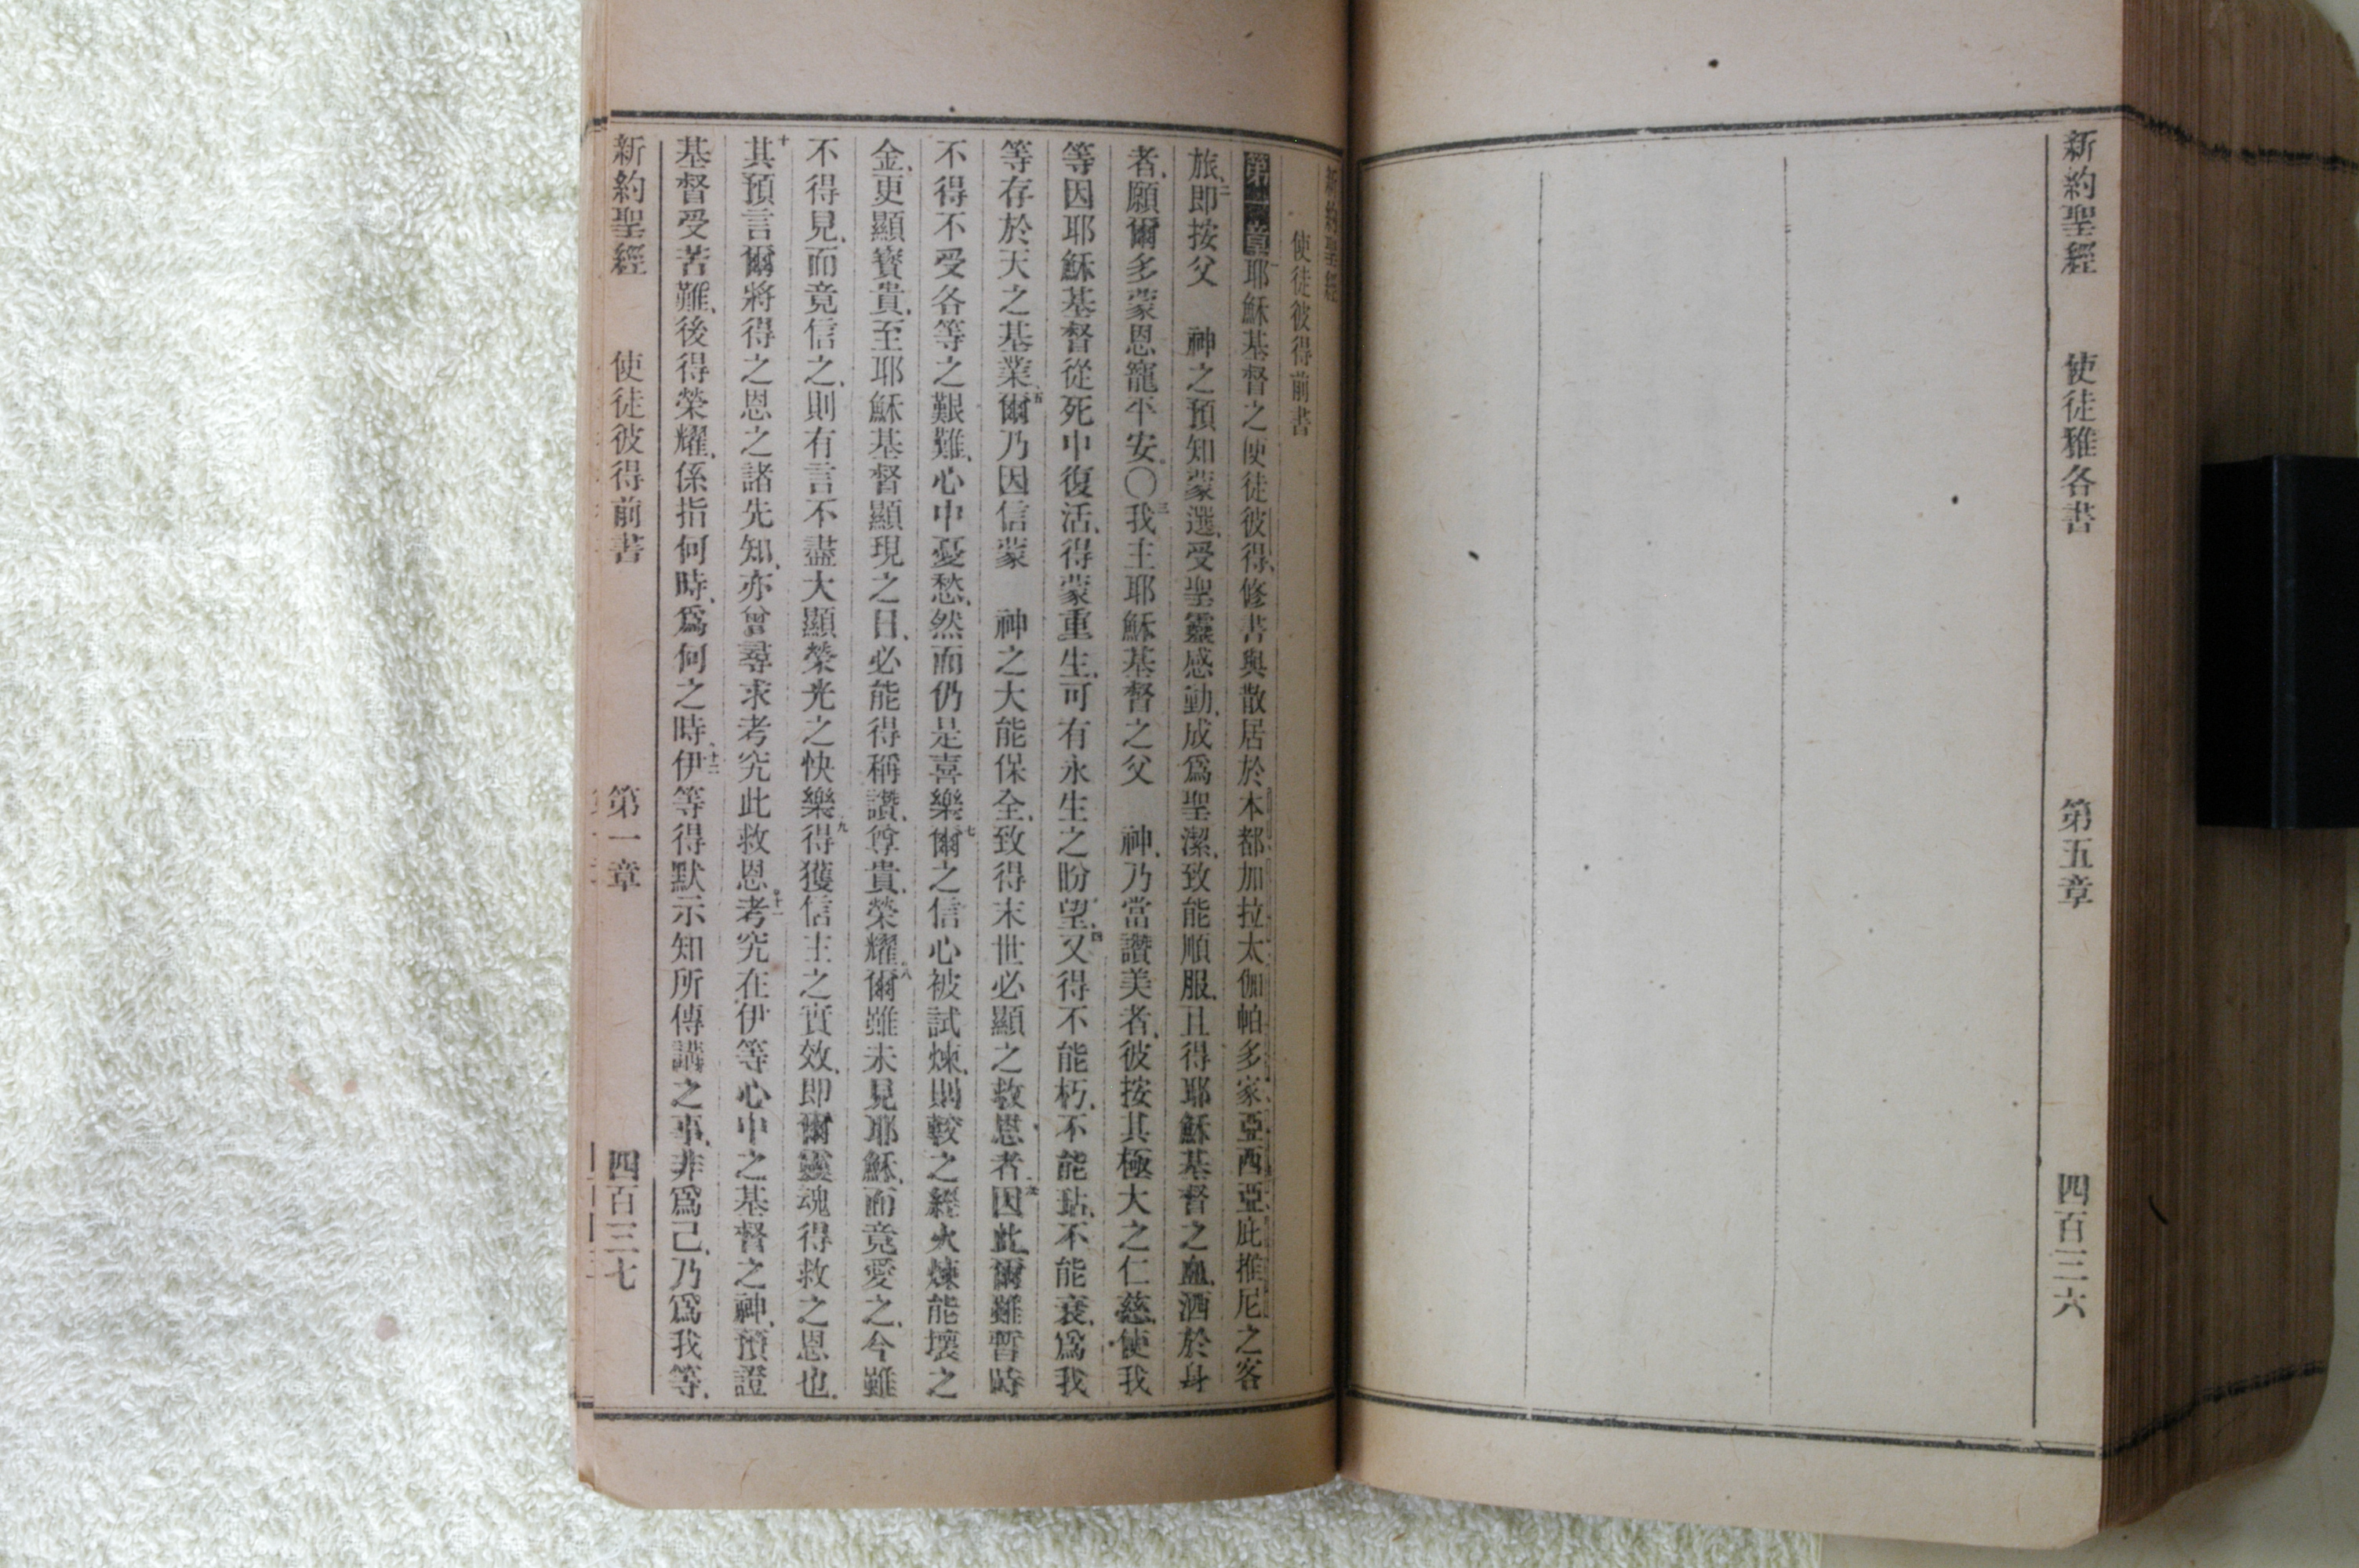 新約聖經 使徒雅各書 第五章 四百三六
新約聖經
使徒彼得前書
第一章耶穌基督之使徒彼得、修書與散居於本都加拉太伽帕多家亞西亞庇推尼之客
旅、二即按父 神之預知蒙選、受聖靈感動、成爲聖潔、致能順服、且得耶穌基督之血、洒於身
者、願爾多蒙恩寵平安。○三我主耶穌基督之父 神、乃當讚美者、彼按其極大之仁慈、使我
等因耶穌基督從死中復活、得蒙重生、可有永生之盼望、四又得不能朽、不能玷、不能衰、爲我
等存於天之基業、五爾乃因信蒙 神之大能保全、致得末世必顯之救恩者、六因此、爾雖暫時
不得不受各等之艱難、心中憂愁、然而仍是喜樂、七爾之信心被試煉、則較之經火煉能壞之
金、更顯寶貴、至耶穌基督顯現之日、必能得稱讚、尊貴、榮耀、八爾雖未見耶穌、而竟愛之、今雖
不得見、而竟信之、則有言不盡大顯榮光之快樂、九得獲信主之實效、即爾靈魂得救之恩也、
十其預言爾將得之恩之諸先知、亦曾尋求考究此救恩、十一考究在伊等心中之基督之神、預證
基督受苦難、後得榮耀、係指何時、爲何之時、十二伊等得默示知所傳講之事、非爲己、乃爲我等、
新約聖經 使徒彼得前書 第一章 四百三七